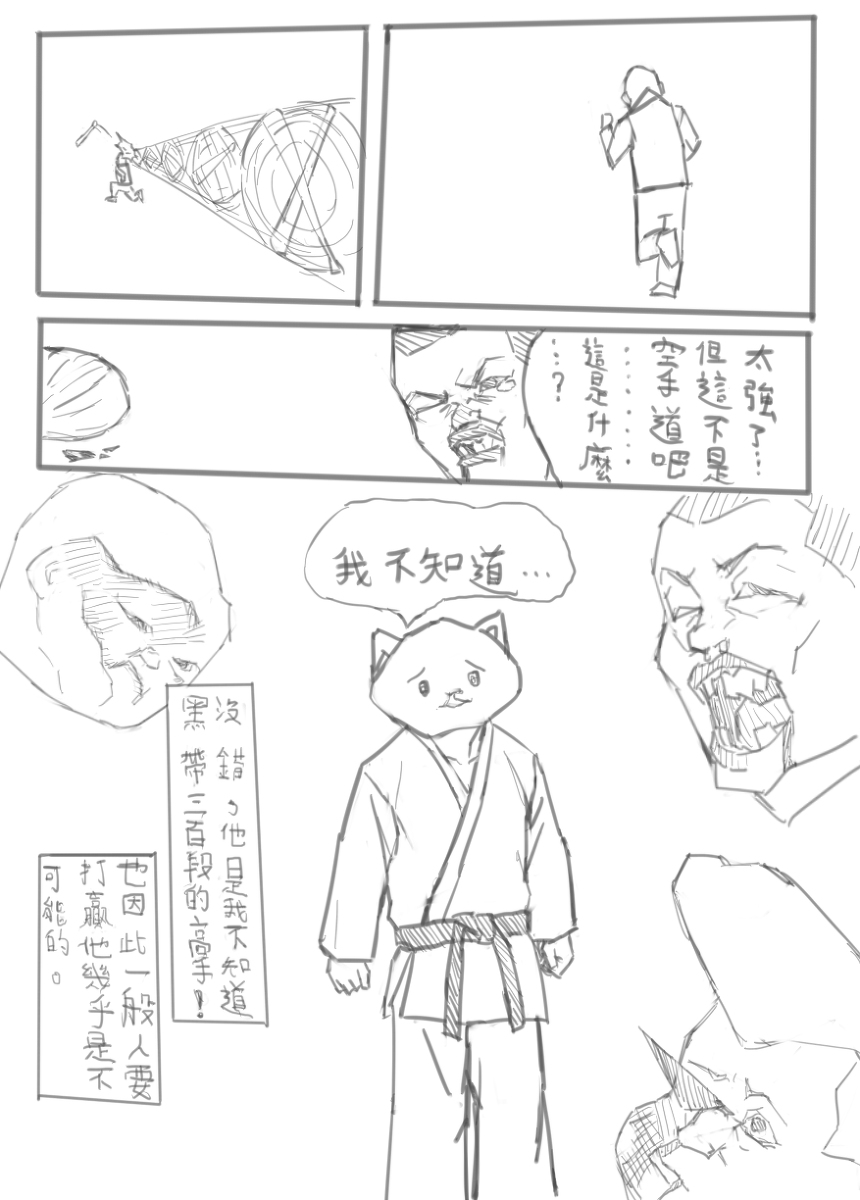 太強了…
但這不是
空手道吧
……
這是什麼
…?
我不知道…
沒錯,他是我不知道
黑帶三百段的高手!
也因此一般人要
打贏他幾乎是不
可能的。